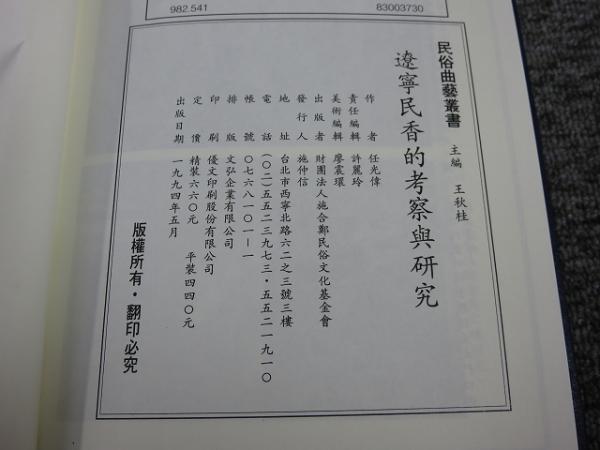 982.541
83003730
民俗曲藝叢書
主編 王秋桂
遼寧民香的考察與研究
作者 任光偉
責任編輯 許麗玲
美術編輯 廖震環
出版者 財團法人施合鄭民俗文化基金會
發行人 施仲信
地址 台北市西寧北路六二之三號三樓
電話 (〇二)五五二三九七三・五五二一九一〇
帳號 〇七六八一〇一-一
排版 文弘企業有限公司
印刷 優文印刷股份有限公司
定價 精裝六六〇元 平裝四四〇元
出版日期 一九九四年五月
版權所有・翻印必究